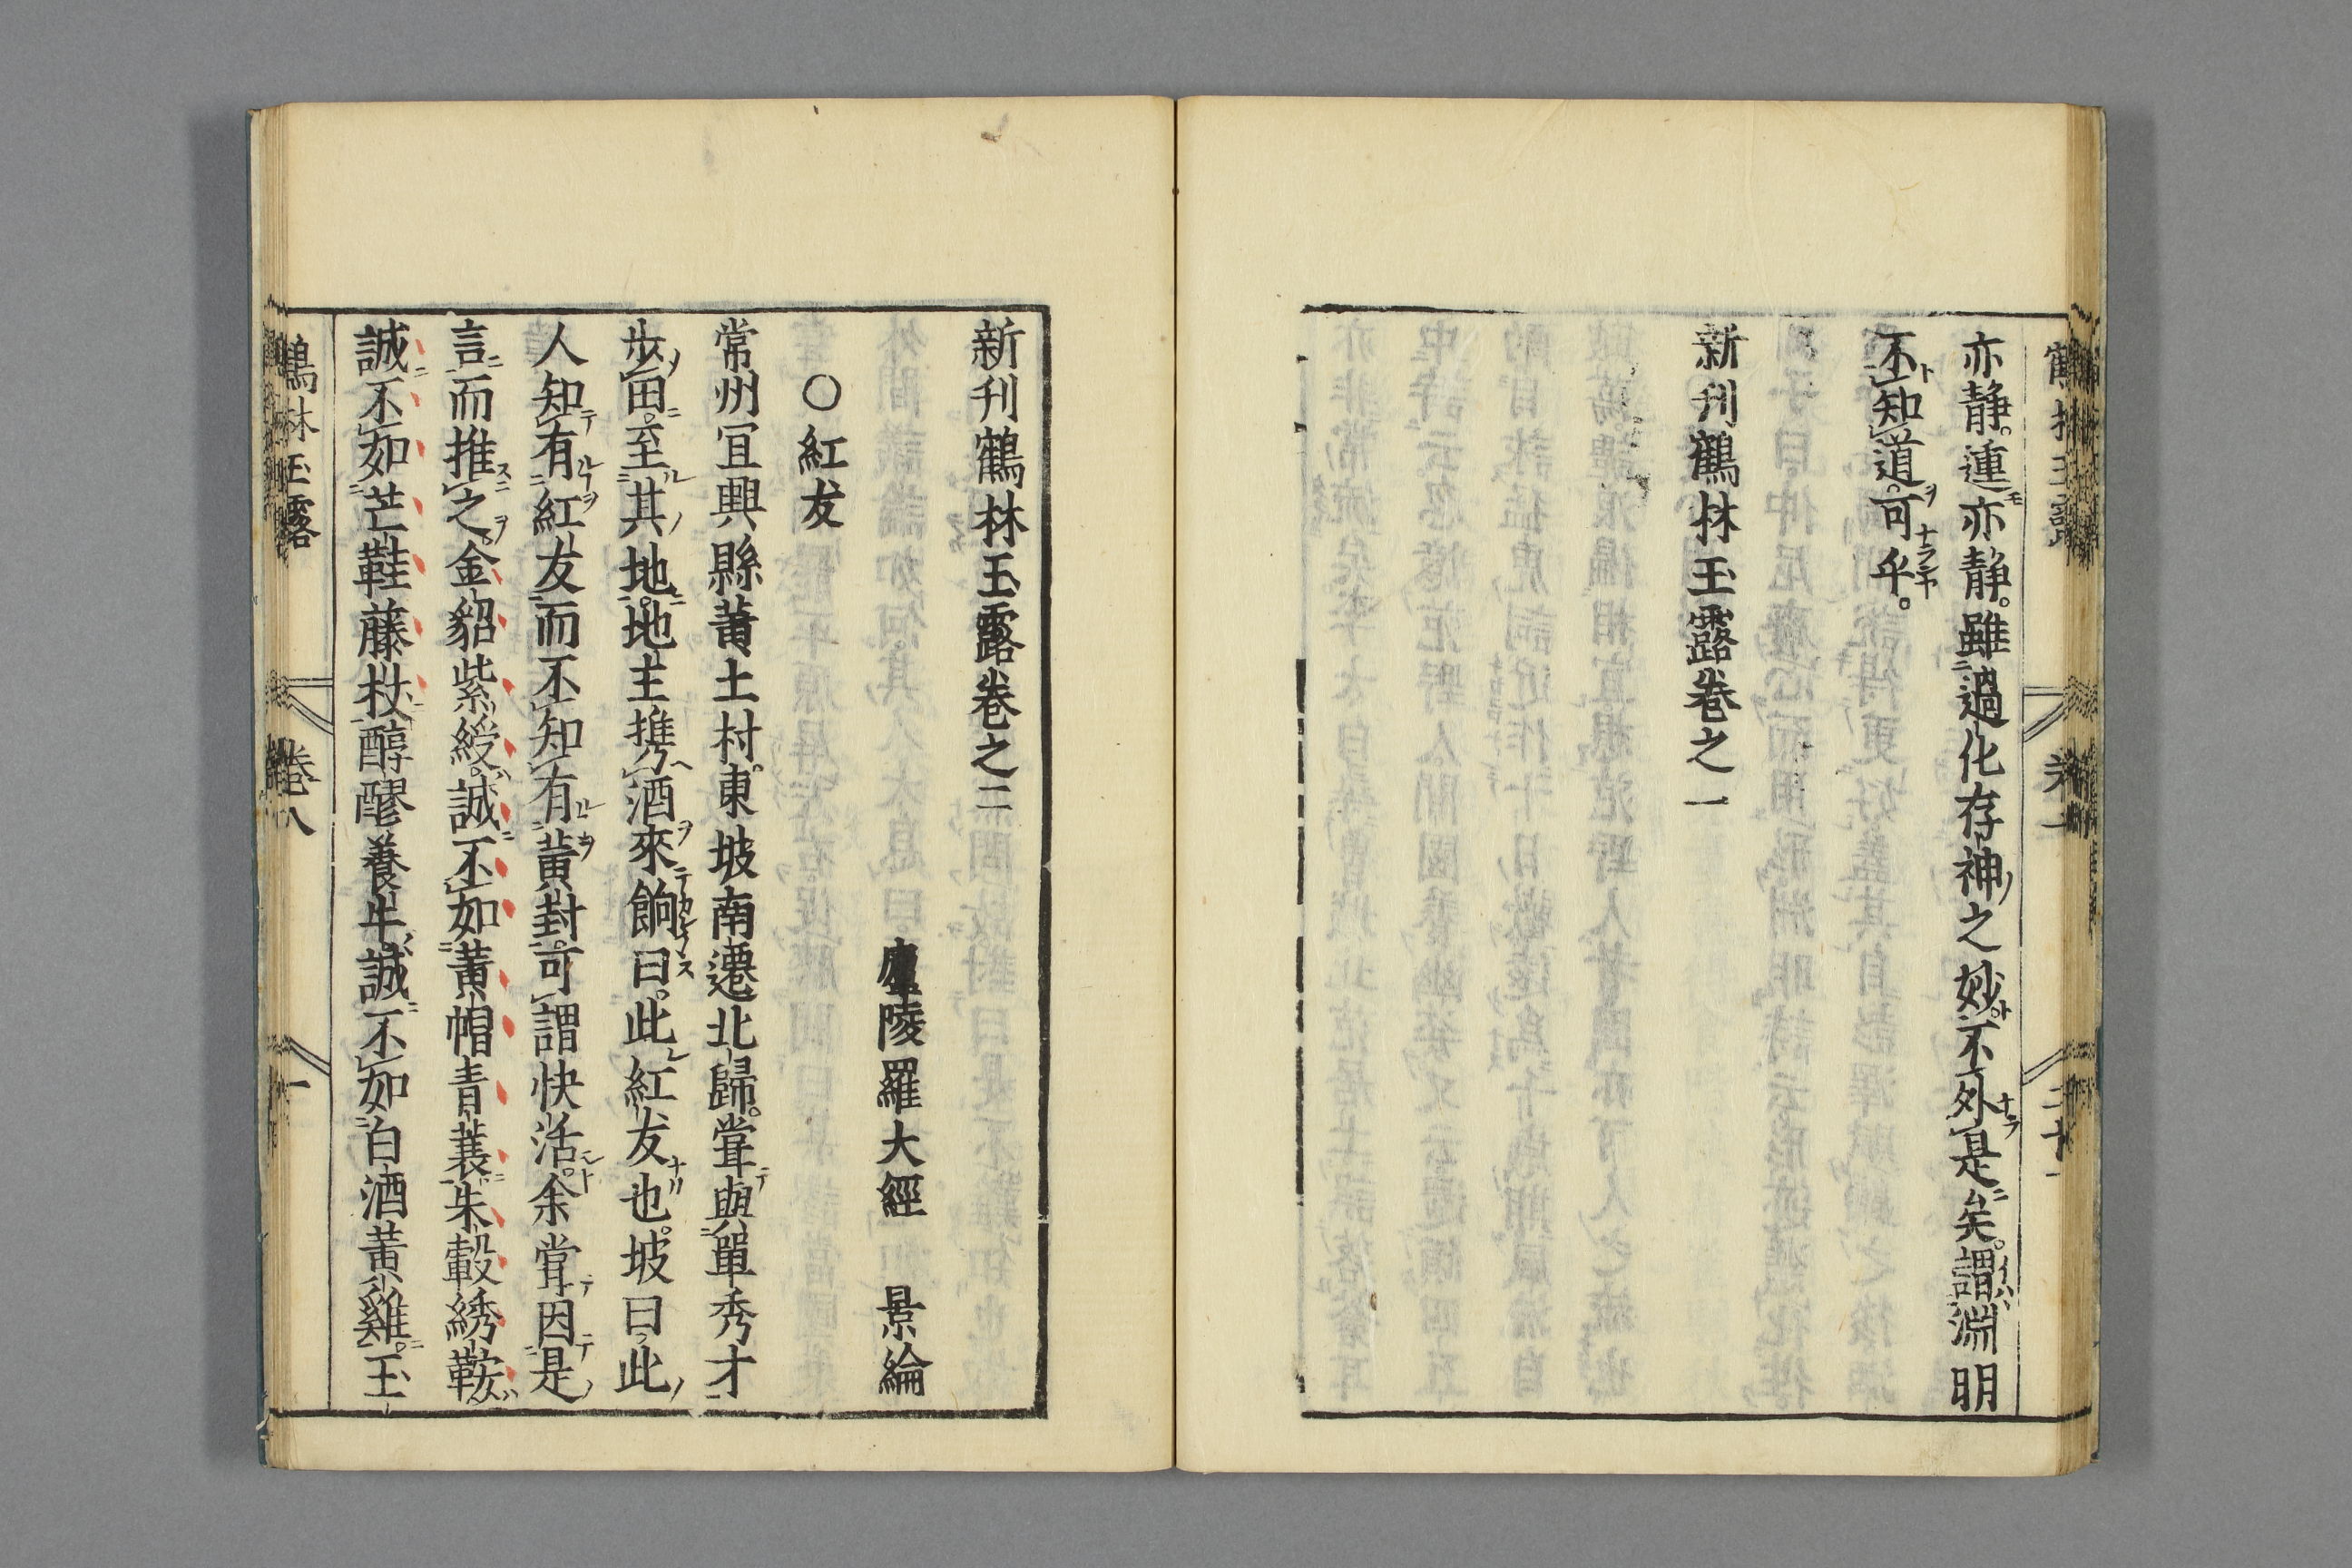 亦静。運亦静。雖過化存神之妙。不外是矣。謂淵明
不知道。可乎。
新刊鶴林玉露卷之一
新刊鶴林玉露卷之二
廬陵羅大經 景綸
○紅友
常州宜興縣黃土村。東坡南遷北歸。嘗與單秀才
步田。至其地。地主携酒來餉曰。此紅友也。坡曰。此
人知有紅友而不知有黃封。可謂快活。余嘗因是
言而推之。金貂紫綬。誠不如黃帽青蓑。朱轂綉鞍
誠不如芒鞋藤杖。醇醪養牛。誠不如白酒黃雞。玉
鶴林玉露 卷八 一